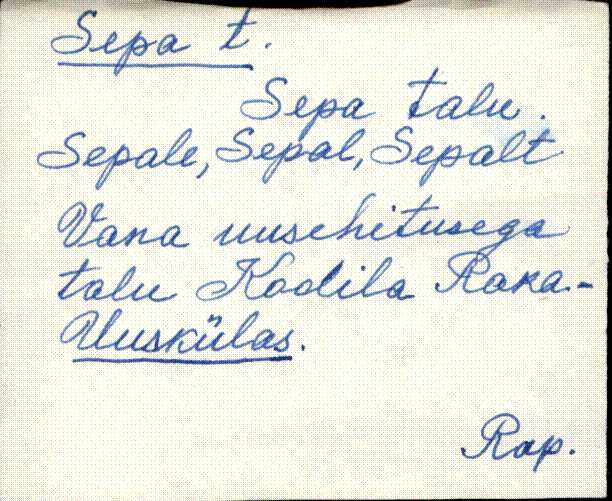 Sepa t.
Sepa talu.
Sepale, Sepal, Sepalt
Vana uusehitusega
talu Kodila Raka-
Uuskülas.
Rap.